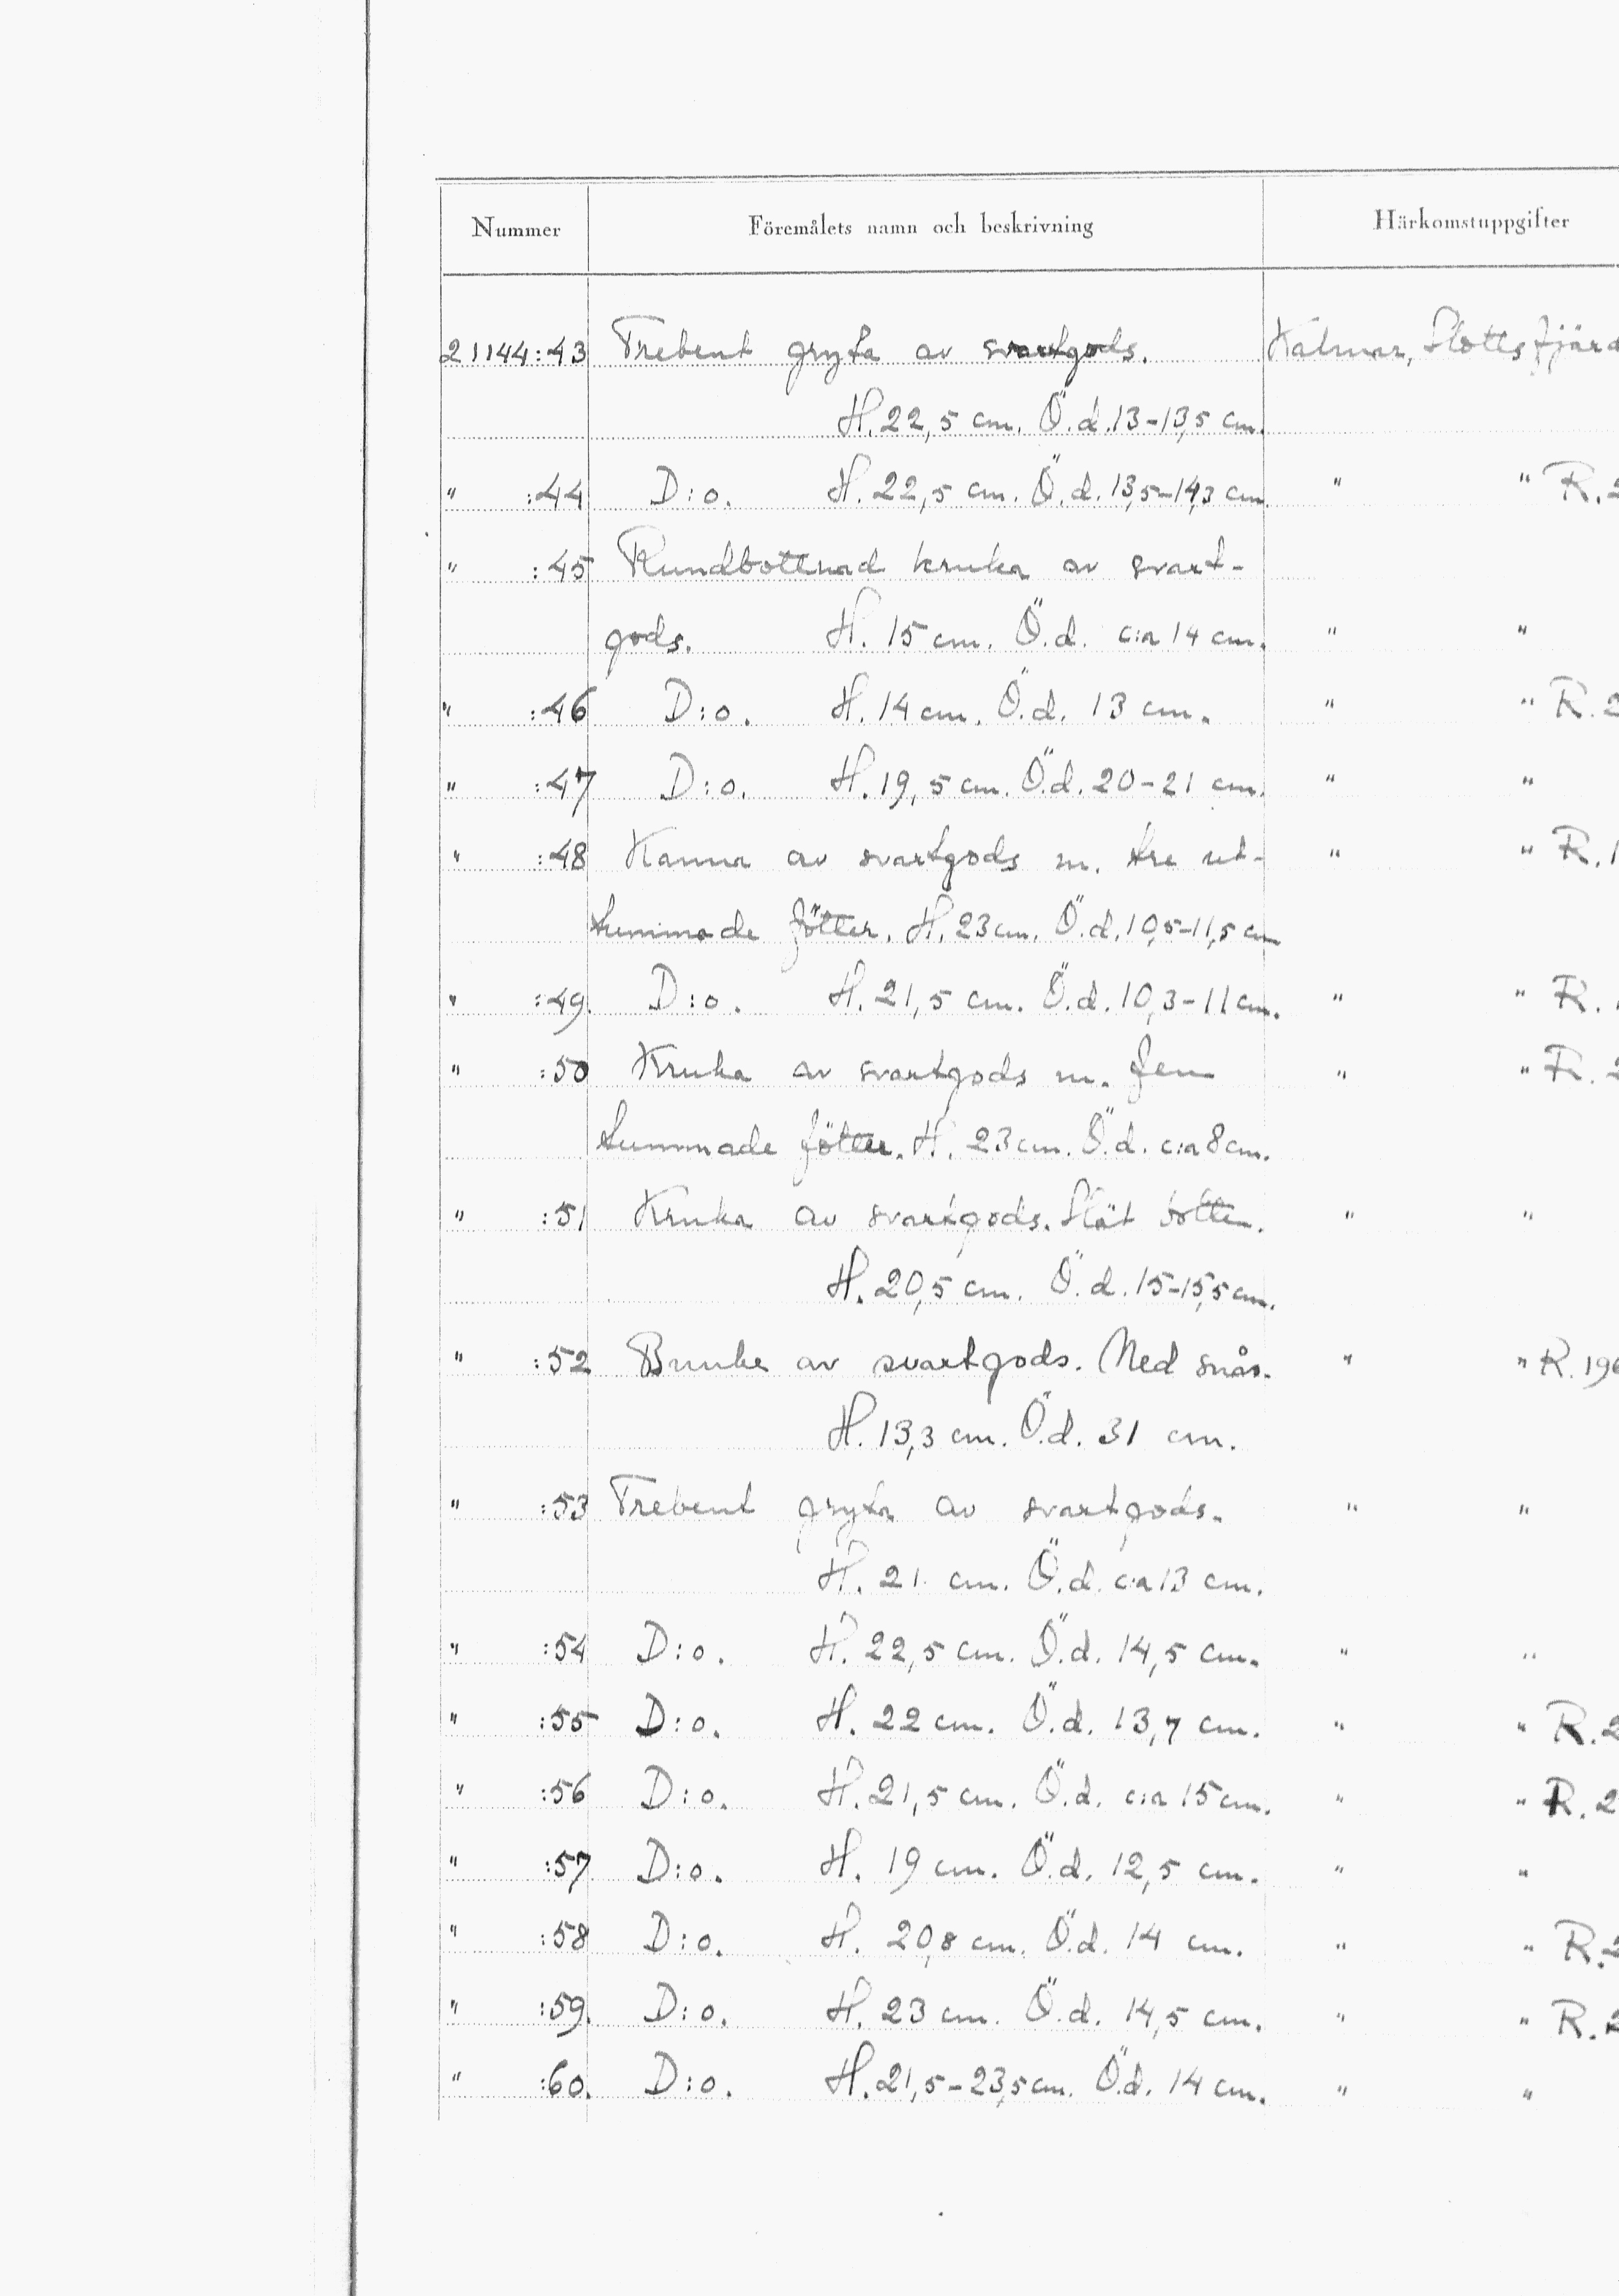 Nummer Föremålets namn och beskrivning Härkomstuppgifter
21144:43 Trebent gryta av svartgods. Kalmar, Slottsfjärd
H. 22,5 cm. Ö.d. 13-13,5 cm.
" :44 D:o. H. 22,5 cm. Ö.d. 13,5-14,3 cm. " " R. 2
" :45 Rundbottnad kruka av svart-
gods. H. 15 cm. Ö.d. c:a 14 cm. " "
" :46 D:o. H. 14 cm. Ö.d. 13 cm. " " R. 2
" :47 D:o. H. 19,5 cm. Ö.d. 20-21 cm. " "
" :48 Kanna av svartgods m. tre ut- " " R. 1
tummade fötter. H. 23 cm. Ö.d. 10,5-11,5 cm
" :49. D:o. H. 21,5 cm. Ö.d. 10,3-11 cm. " " R.
" :50 Kruka av svartgods m. fem " " R. 2
tummade fötter. H. 23 cm. Ö.d. c:a 8 cm.
" :51 Kruka av svartgods. Slät botten. " "
H. 20,5 cm. Ö.d. 15-15,5 cm.
" :52 Bunke av svartgods. Med snås. " " R. 196
H. 13,3 cm. Ö.d. 31 cm.
" :53 Trebent gryta av svartgods. " "
H. 21 cm. Ö.d. c:a 13 cm.
" :54 D:o. H. 22,5 cm. Ö.d. 14,5 cm. " "
" :55 D:o. H. 22 cm. Ö.d. 13,7 cm. " " R. 2
" :56 D:o. H. 21,5 cm. Ö.d. c:a 15 cm. " " R. 2
" :57 D:o. H. 19 cm. Ö.d. 12,5 cm. " "
" :58 D:o. H. 20,8 cm. Ö.d. 14 cm. " " R. 2
" :59. D:o. H. 23 cm. Ö.d. 14,5 cm. " " R. 2
" :60. D:o. H. 21,5-23,5 cm. Ö.d. 14 cm. " "